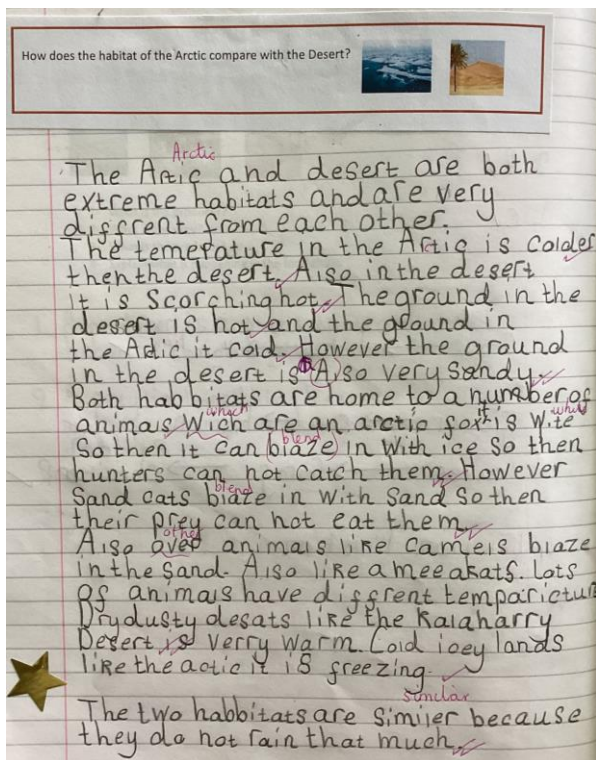 How does the habitat of the Arctic compare with the Desert?
Arctic
The Artic and desert are both
extreme habitats and are very
diffrent from each other.
The temepature in the Artic is Colder
then the desert. Also in the desert
it is Scorching hot. The ground in the
desert is hot and the ground in
the Actic it cold. However the ground
in the desert is Also very Sandy.
Both habbitats are home to a number of
which it white
animals Wich are an arctic fox is Wite
blend
So then it can blaze in With ice So then
hunters can not catch them. However
blend
Sand cats blaze in with Sand So then
their prey can not eat them.
other
Also over animals like Camels blaze
in the Sand. Also like a meeakats. Lots
of animals have diffrent temparictur
Dry dusty desats like the Kalaharry
Desert is Verry Warm. Cold icey lands
like the actic it is freezing.
similar
The two habbitats are Similer because
they do not rain that much.